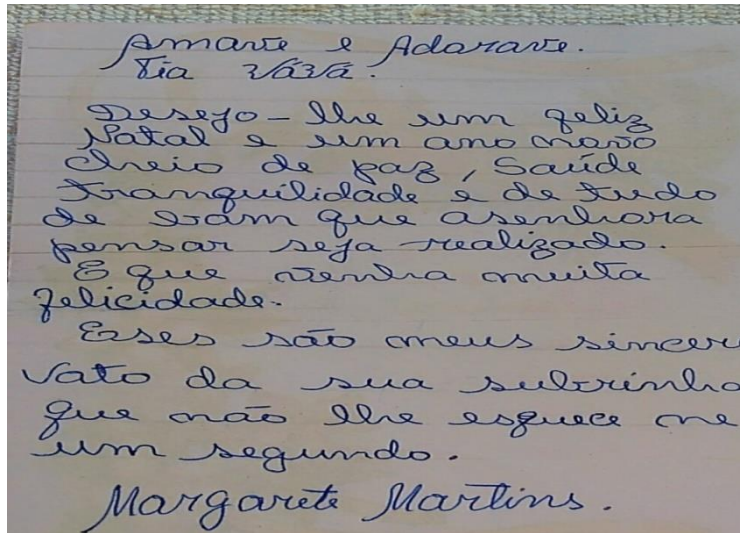 Amavie e Adoravie.
Tia Vává.
Desejo-lhe um feliz
Natal e um ano novo
cheio de paz, Saúde
tranquilidade e de tudo
de bom que asenhora
pensar seja realizado.
E que venha muita
felicidade.
Esses são meus sincer
Vato da sua subrinha
que não lhe esquece ne
um segundo.
Margarete Martins.